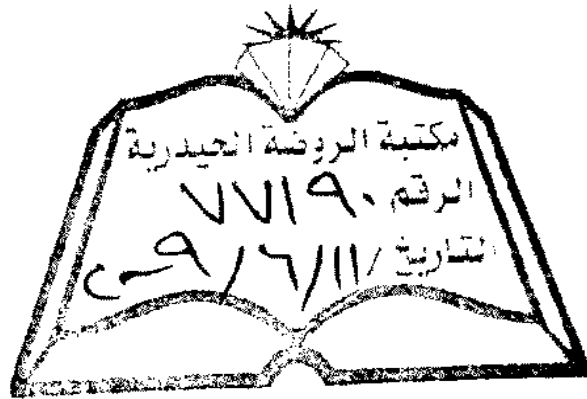 مكتبة الروضة الحيدرية
الرقم ٧٧١٩٠
التاريخ / ١١ / ٦ / ٩